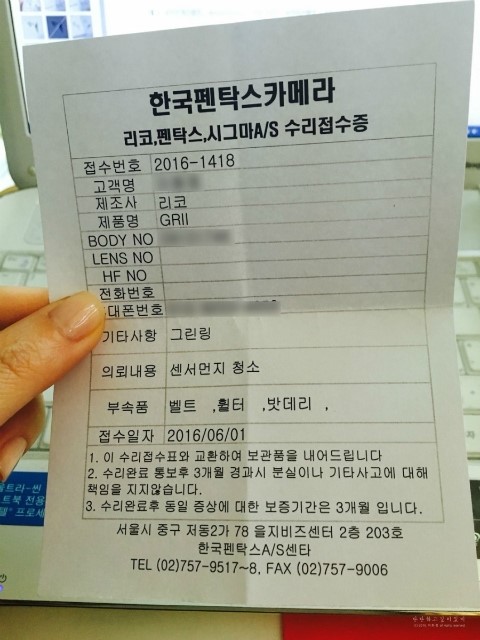 한국펜탁스카메라
리코,펜탁스,시그마A/S 수리접수증
접수번호 2016-1418
고객명
제조사 리코
제품명 GRII
BODY NO
LENS NO
HF NO
전화번호
대폰번호
기타사항 그린링
의뢰내용 센서먼지 청소
부속품 벨트 ,휠터 ,밧데리 ,
접수일자 2016/06/01
1. 이 수리접수표와 교환하여 보관품을 내어드립니다
2. 수리완료 통보후 3개월 경과시 분실이나 기타사고에 대해
책임을 지지않습니다.
3. 수리완료후 동일 증상에 대한 보증기간은 3개월 입니다.
서울시 중구 저동2가 78 을지비즈센터 2층 203호
한국펜탁스A/S센타
TEL (02)757-9517~8, FAX (02)757-9006
울트라-씬
트북 전용